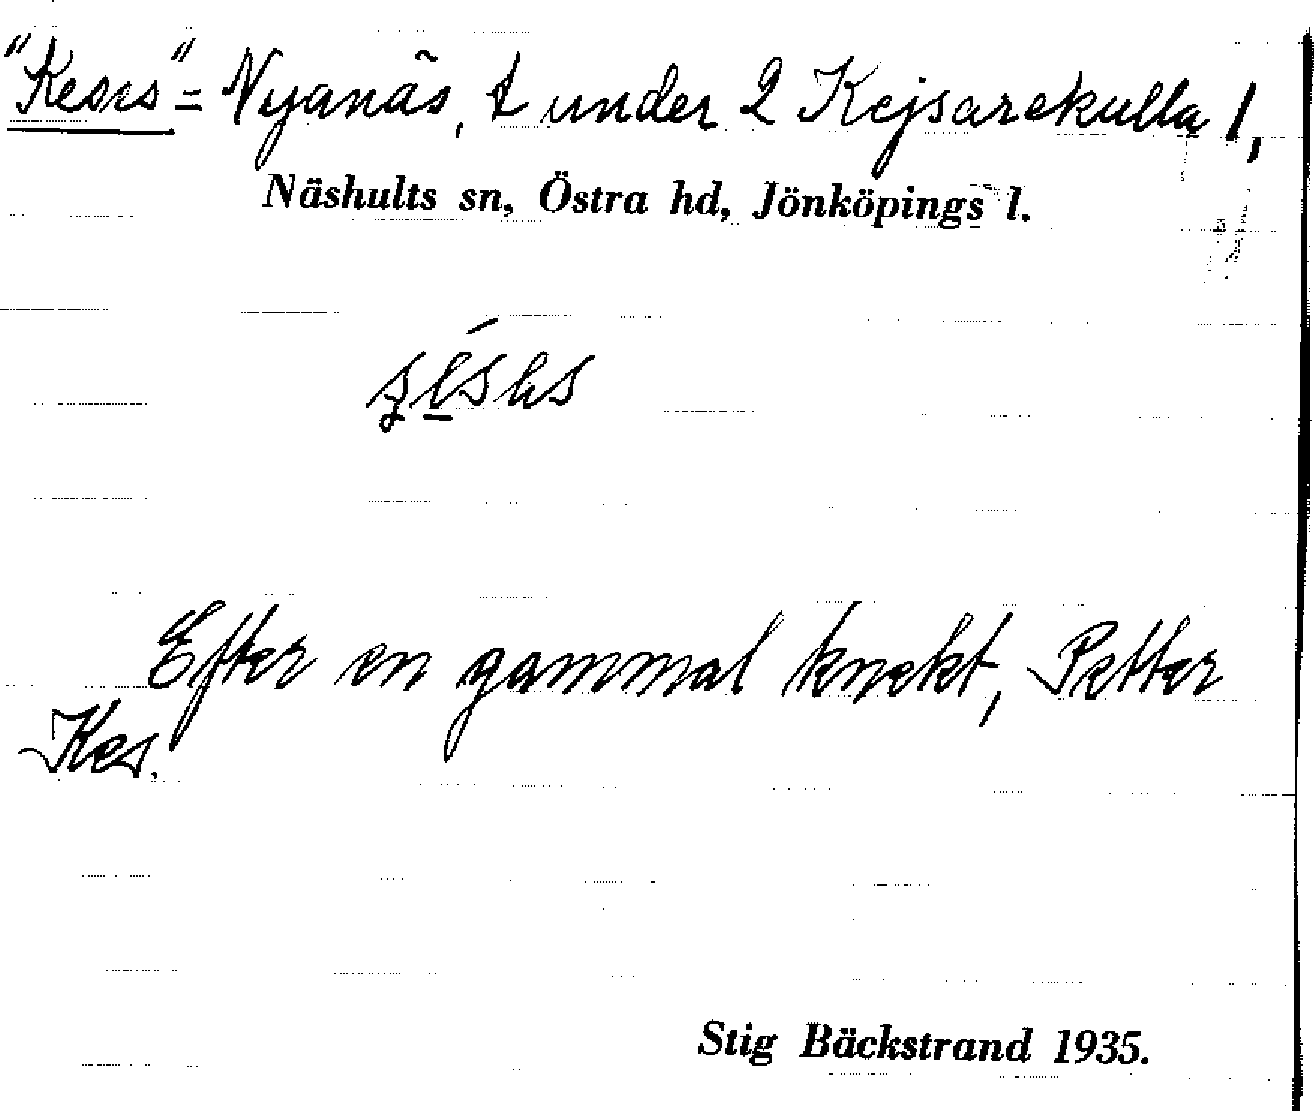 "Keses" = Nyanäs, t under 2 Kejsarekulla 1,
Näshults sn, Östra hd, Jönköpings l.
Efter en gammal knekt, Petter
Kes.
Stig Bäckstrand 1935.